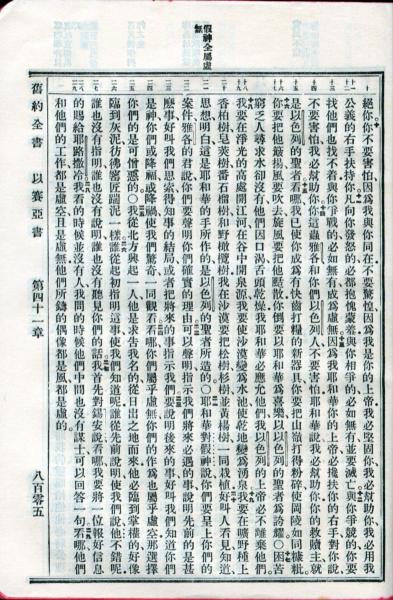 假神全屬虛無
絕你你不要害怕因爲我與你同在不要驚惶因爲我是你的上帝我必堅固你我必幫助你我必用我
公義的右手扶持你凡向你發怒的必都抱愧蒙羞與你相爭的必如無有並要滅亡與你爭競的你要
找他們也找不着與你爭戰的必如無有成爲虛無因爲我耶和華你的上帝必攙扶你的右手對你說
不要害怕我必幫助你你這蟲雅各和你們以色列人不要害怕耶和華說我必幫助你你的救贖主就
是以色列的聖者看哪我已使你成爲有快齒打糧的新器具你要把山嶺打得粉碎使岡陵如同糠粃
你要把他簸揚風要吹去旋風要把他颳散你倒要以耶和華爲喜樂以以色列的聖者爲誇耀〇困苦
窮乏人尋求水卻沒有他們因口渴舌頭乾燥我耶和華必應允他們我以色列的上帝必不離棄他們
我要在淨光的高處開江河在谷中開泉源我要使沙漠變爲水池使乾地變爲湧泉我要在曠野種上
香柏樹皂莢樹番石榴樹和野橄欖樹我在沙漠要把松樹杉樹並黃楊樹一同栽植好叫人看見知道
思想明白這是耶和華的手所作的是以色列的聖者所造的〇耶和華對假神說你們要呈上你們的
案件雅各的君說你們要聲明你們確實的理由可以聲明指示我們將來必遇的事說明先前的是甚
麽事好叫我們思索得知事的結局或者把將來的事指示我們要說明後來的事好叫我們知道你們
是神你們或降福或降禍使我們驚奇一同觀看看哪你們屬乎虛無你們的作爲也屬乎虛空那選擇
你們的是可憎惡的〇我從北方興起一人他是求告我名的從日出之地而來他必臨到掌權的好像
臨到灰泥彷彿窰匠踹泥一樣誰從起初指明這事使我們知道呢誰從先前說明使我們說他不錯呢
誰也沒有指明誰也沒有說明誰也沒有聽見你們的話我首先對錫安說看哪我要將一位報好信息
的賜給耶路撒冷我看的時候並沒有人我問的時候他們中間也沒有謀士可以回答一句看哪他們
和他們的工作都是虛空且是虛無他們所鑄的偶像都是風都是虛的
舊約全書 以賽亞書 第四十一章 八百零五